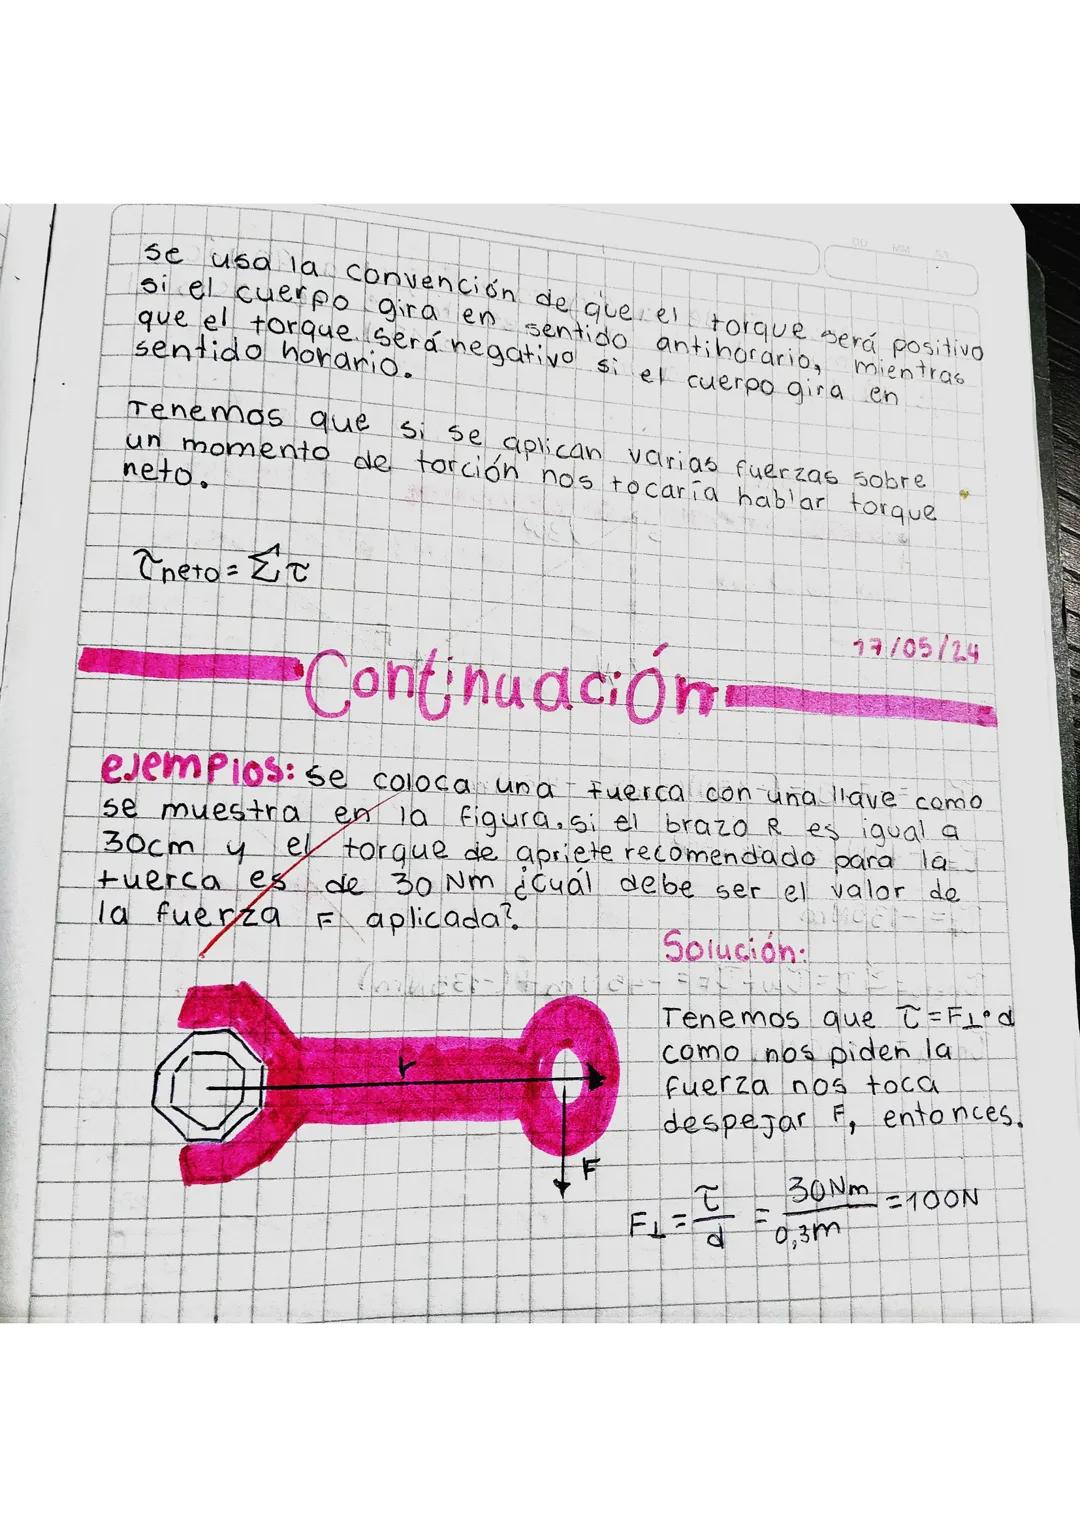 se usa la convención de que el torque será positivo
si el cuerpo gira en sentido antihorario, mientras
que el torque será negativo si el cuerpo gira en
sentido horario.
Tenemos que si se aplican varias fuerzas sobre
un momento de torción nos tocaría hablar torque
neto.
τneto = Σ τ
17/05/24
Continuación
ejemplos: se coloca una tuerca con una llave como
se muestra en la figura. si el brazo R es igual a
30cm y el torque de apriete recomendado para la
tuerca es de 30 Nm ¿Cuál debe ser el valor de
la fuerza F aplicada?
Solución:
Tenemos que τ = F⊥·d
como nos piden la
fuerza nos toca
despejar F, entonces.
r
F
F⊥ = τ/d = 30Nm/0,3m = 100N